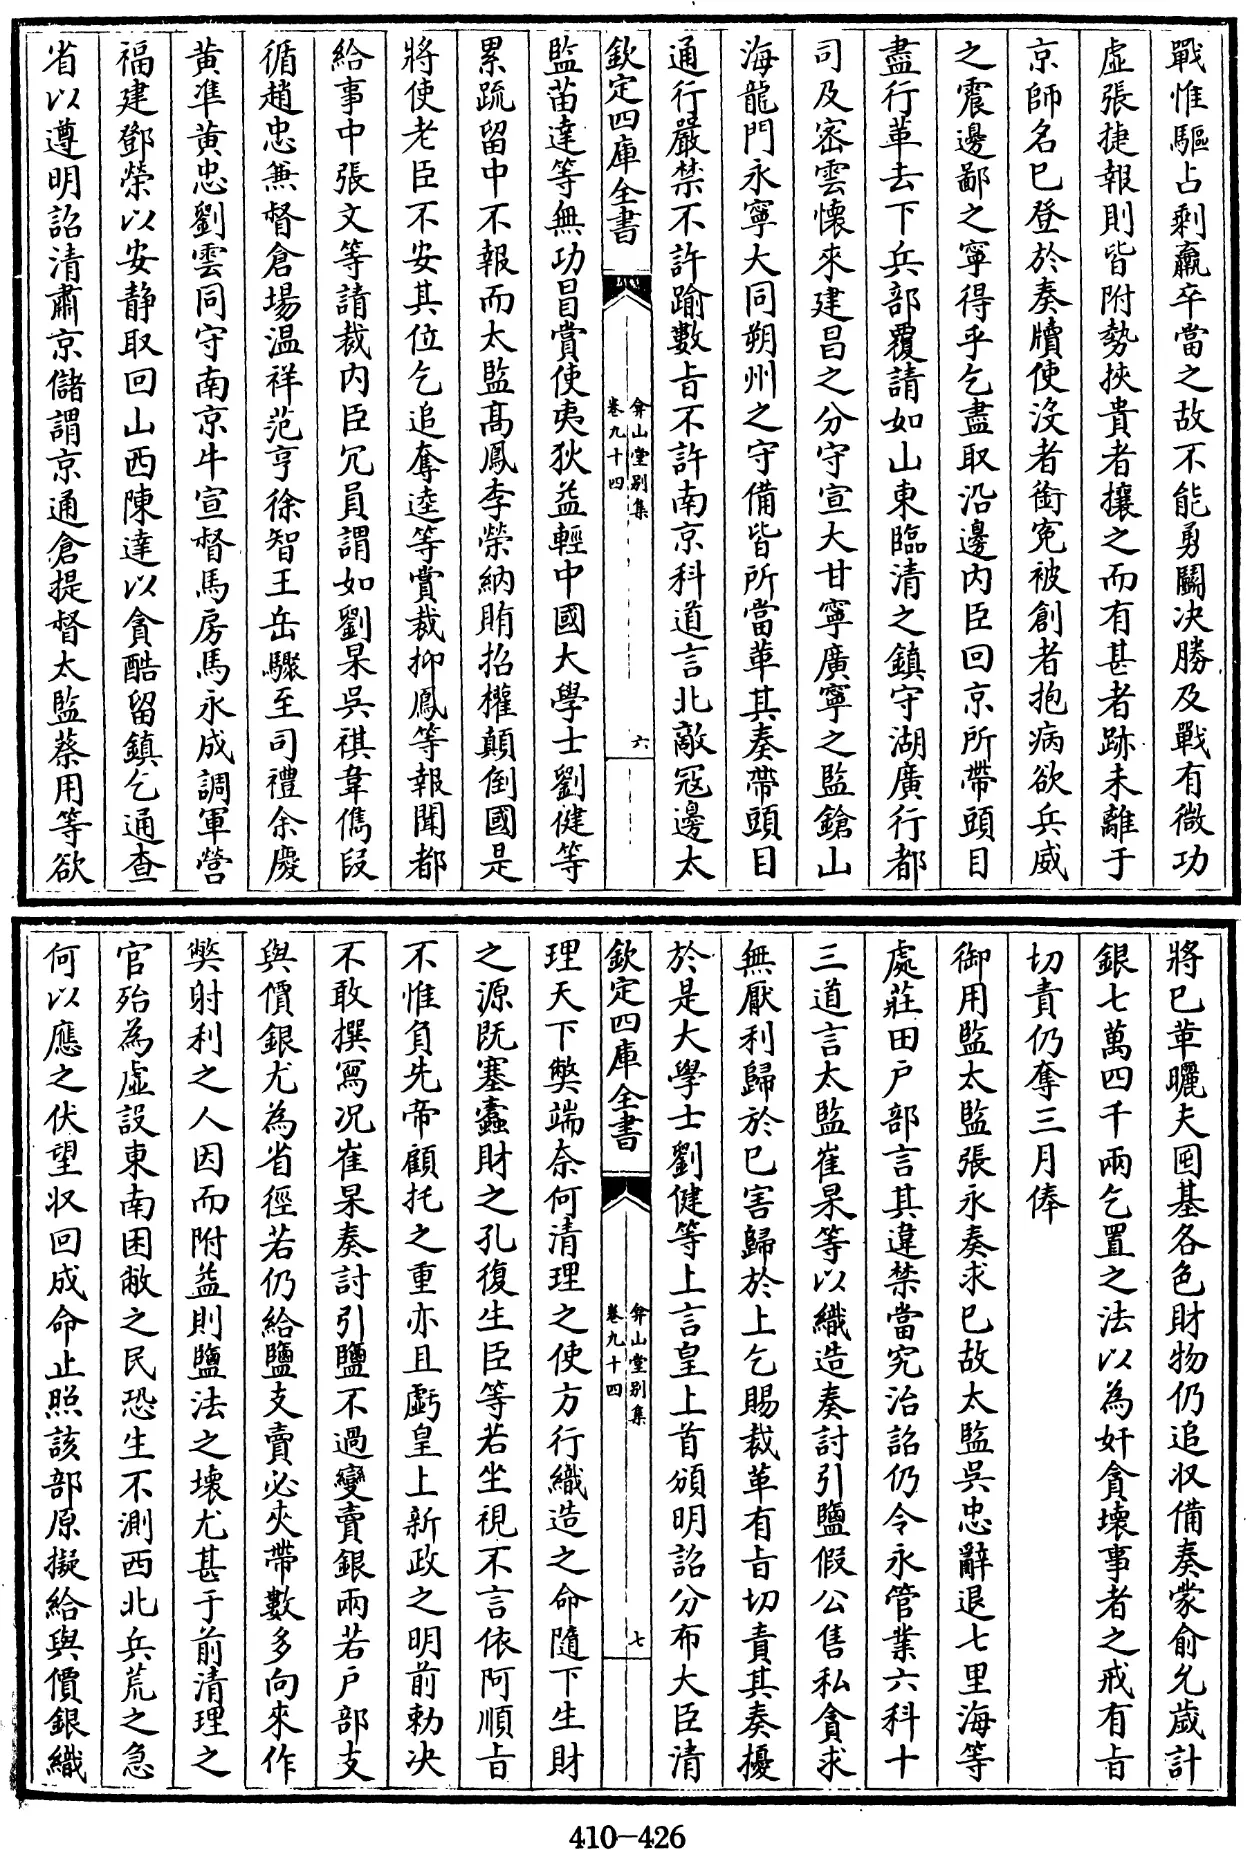 戰惟驅占剩羸卒當之故不能勇鬭决勝及戰有微功
虛張捷報則皆附勢挾貴者攘之而有甚者跡未離于
京師名已登於奏牘使沒者銜寃被創者抱病欲兵威
之震邊鄙之寧得乎乞盡取沿邊内臣回京所帶頭目
盡行革去下兵部覆請如山東臨清之鎮守湖廣行都
司及密雲懷來建昌之分守宣大甘寧廣寧之監鎗山
海龍門永寧大同朔州之守備皆所當革其奏帶頭目
通行嚴禁不許踰數㫖不許南京科道言北敵冦邊太
欽定四庫全書
弇山堂别集
卷九十四
六
監苗逵等無功冒賞使夷狄益輕中國大學士劉健等
累疏留中不報而太監高鳳李榮納賄招權顛倒國是
將使老臣不安其位乞追奪逵等賞裁抑鳳等報聞都
給事中張文等請裁内臣冗員謂如劉杲吳祺韋儁段
循趙忠兼督倉場温祥范亨徐智王岳驟至司禮余慶
黄準黄忠劉雲同守南京牛宣督馬房馬永成調軍營
福建鄧榮以安静取回山西陳達以貪酷留鎮乞通查
省以遵明詔清肅京儲謂京通倉提督太監蔡用等欲
將已革曬夫囤基各色財物仍追収備奏蒙俞允歲計
銀七萬四千兩乞置之法以為奸貪壊事者之戒有㫖
切責仍奪三月俸
御用監太監張永奏求已故太監吳忠辭退七里海等
處莊田户部言其違禁當究治詔仍令永管業六科十
三道言太監崔杲等以織造奏討引鹽假公售私貪求
無厭利歸於已害歸於上乞賜裁革有㫖切責其奏擾
於是大學士劉健等上言皇上首頒明詔分布大臣清
欽定四庫全書
弇山堂别集
卷九十四
七
理天下弊端奈何清理之使方行織造之命隨下生財
之源既塞蠹財之孔復生臣等若坐視不言依阿順㫖
不惟負先帝顧托之重亦且虧皇上新政之明前勅决
不敢撰寫况崔杲奏討引鹽不過變賣銀兩若户部支
與價銀尤為省徑若仍給鹽支賣必夾帶數多向來作
弊射利之人因而附益則鹽法之壊尤甚于前清理之
官殆為虛設東南困敝之民恐生不測西北兵荒之急
何以應之伏望収回成命止照該部原擬給與價銀織
410-426